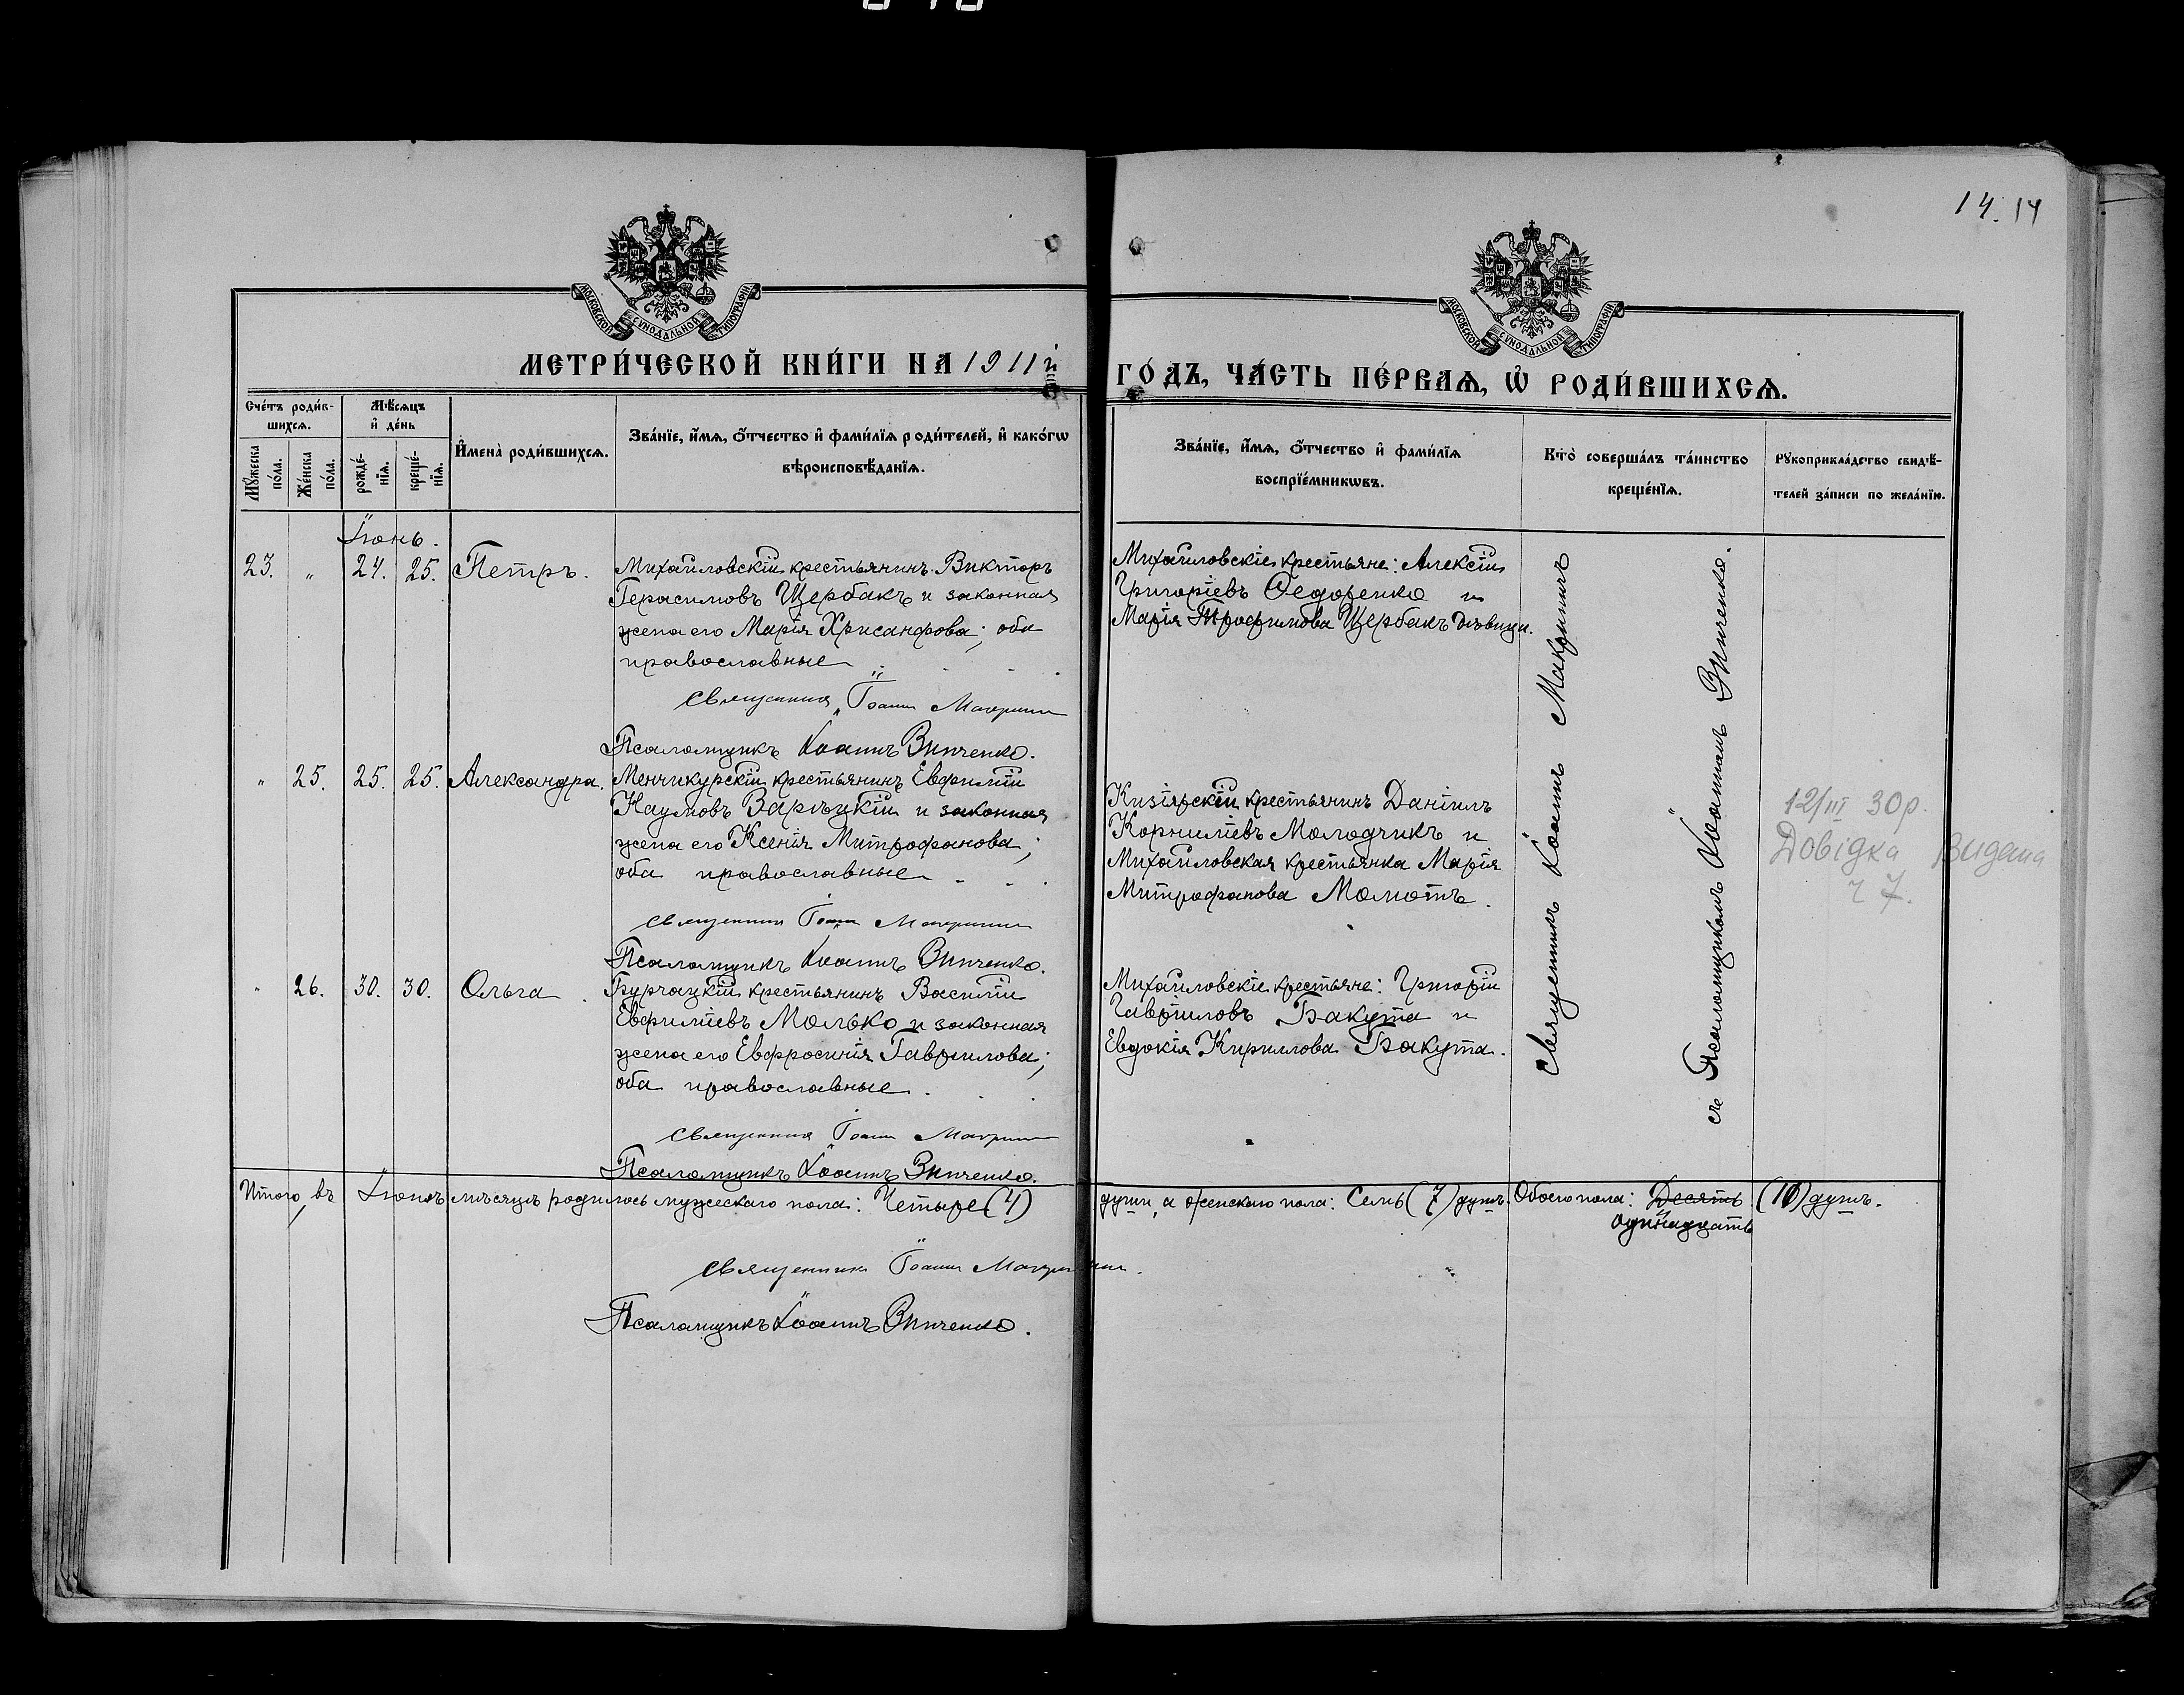 14. 14
МОСКОВСКОЙ СѴНОДАЛЬНОЙ ТИПОГРАФІИ
МОСКОВСКОЙ СѴНОДАЛЬНОЙ ТИПОГРАФІИ
МЕТРИ́ЧЕСКОЙ КНИ́ГИ НА 1911й
ГО́ДЪ, ЧА́СТЬ ПЕ́РВАѦ, Ѡ҆ РОДИ́ВШИХСѦ.
Сче́тъ роди́в-
шихсѧ.
Мѣ́сѧцъ
и҆ де́нь
Мꙋ́жеска
по́ла.
Же́нска
по́ла.
рожде́-
нїѧ.
креще́-
нїѧ.
И҆мена̀ роди́вшихсѧ.
Зва́нїе, и҆́мѧ, ѻ҆́тчество и҆ фами́лїѧ роди́телей, и҆ како́гѡ
вѣроисповѣ́данїѧ.
Зва́нїе, и҆́мѧ, ѻ҆́тчество и҆ фами́лїѧ
воспрїе́мникѡвъ.
Кто̀ соверша́лъ та́инство
креще́нїѧ.
Рꙋкоприкла́дство свидѣ́-
телей за́писи по жела́нїю.
Іюнь.
23. „ 24. 25. Петръ.
Михайловскій крестьянинъ Викторъ
Герасимовъ Щербакъ и законная
жена его Марія Хрисанфова; оба
православные
Священникъ Іоаннъ Макринъ
Псаломщикъ Іоаннъ Зинченко.
Михайловскіе крестьяне: Алексій
Григоріевъ Ѳедоренко и
Марія Трофимова Щербакъ дѣвица.
„ 25. 25. 25. Александра.
Менчикурскій крестьянинъ Евфимій
Наумовъ Зарѣцкій и законная
жена его Ксенія Митрофанова;
оба православные
Священникъ Іоаннъ Макринъ
Псаломщикъ Іоаннъ Зинченко.
Кизіярскій крестьянинъ Даніилъ
Корниліевъ Молодчикъ и
Михайловская крестьянка Марія
Митрофанова Момотъ.
12/III 30р.
Довідка видана
ч 7.
„ 26. 30. 30. Ольга.
Бурчацкій крестьянинъ Василій
Евфиміевъ Молько и законная
жена его Евфросинія Гавріилова;
оба православные.
Священникъ Іоаннъ Макринъ
Псаломщикъ Іоаннъ Зинченко.
Михайловскіе крестьяне: Григорій
Гавріиловъ Бакута и
Евдокія Кириллова Бакута.
Священникъ Іоаннъ Макринъ
съ Псаломщикомъ Іоанномъ Зинченко.
Итого, въ Іюнѣ мѣсяцѣ родилось мужескаго пола: Четыре (4) души, а женскаго пола: Семь (7) душъ. Обоего пола: Десять (11) душъ.
одинадцать
Священникъ Іоаннъ Макринъ.
Псаломщикъ Іоаннъ Зинченко.